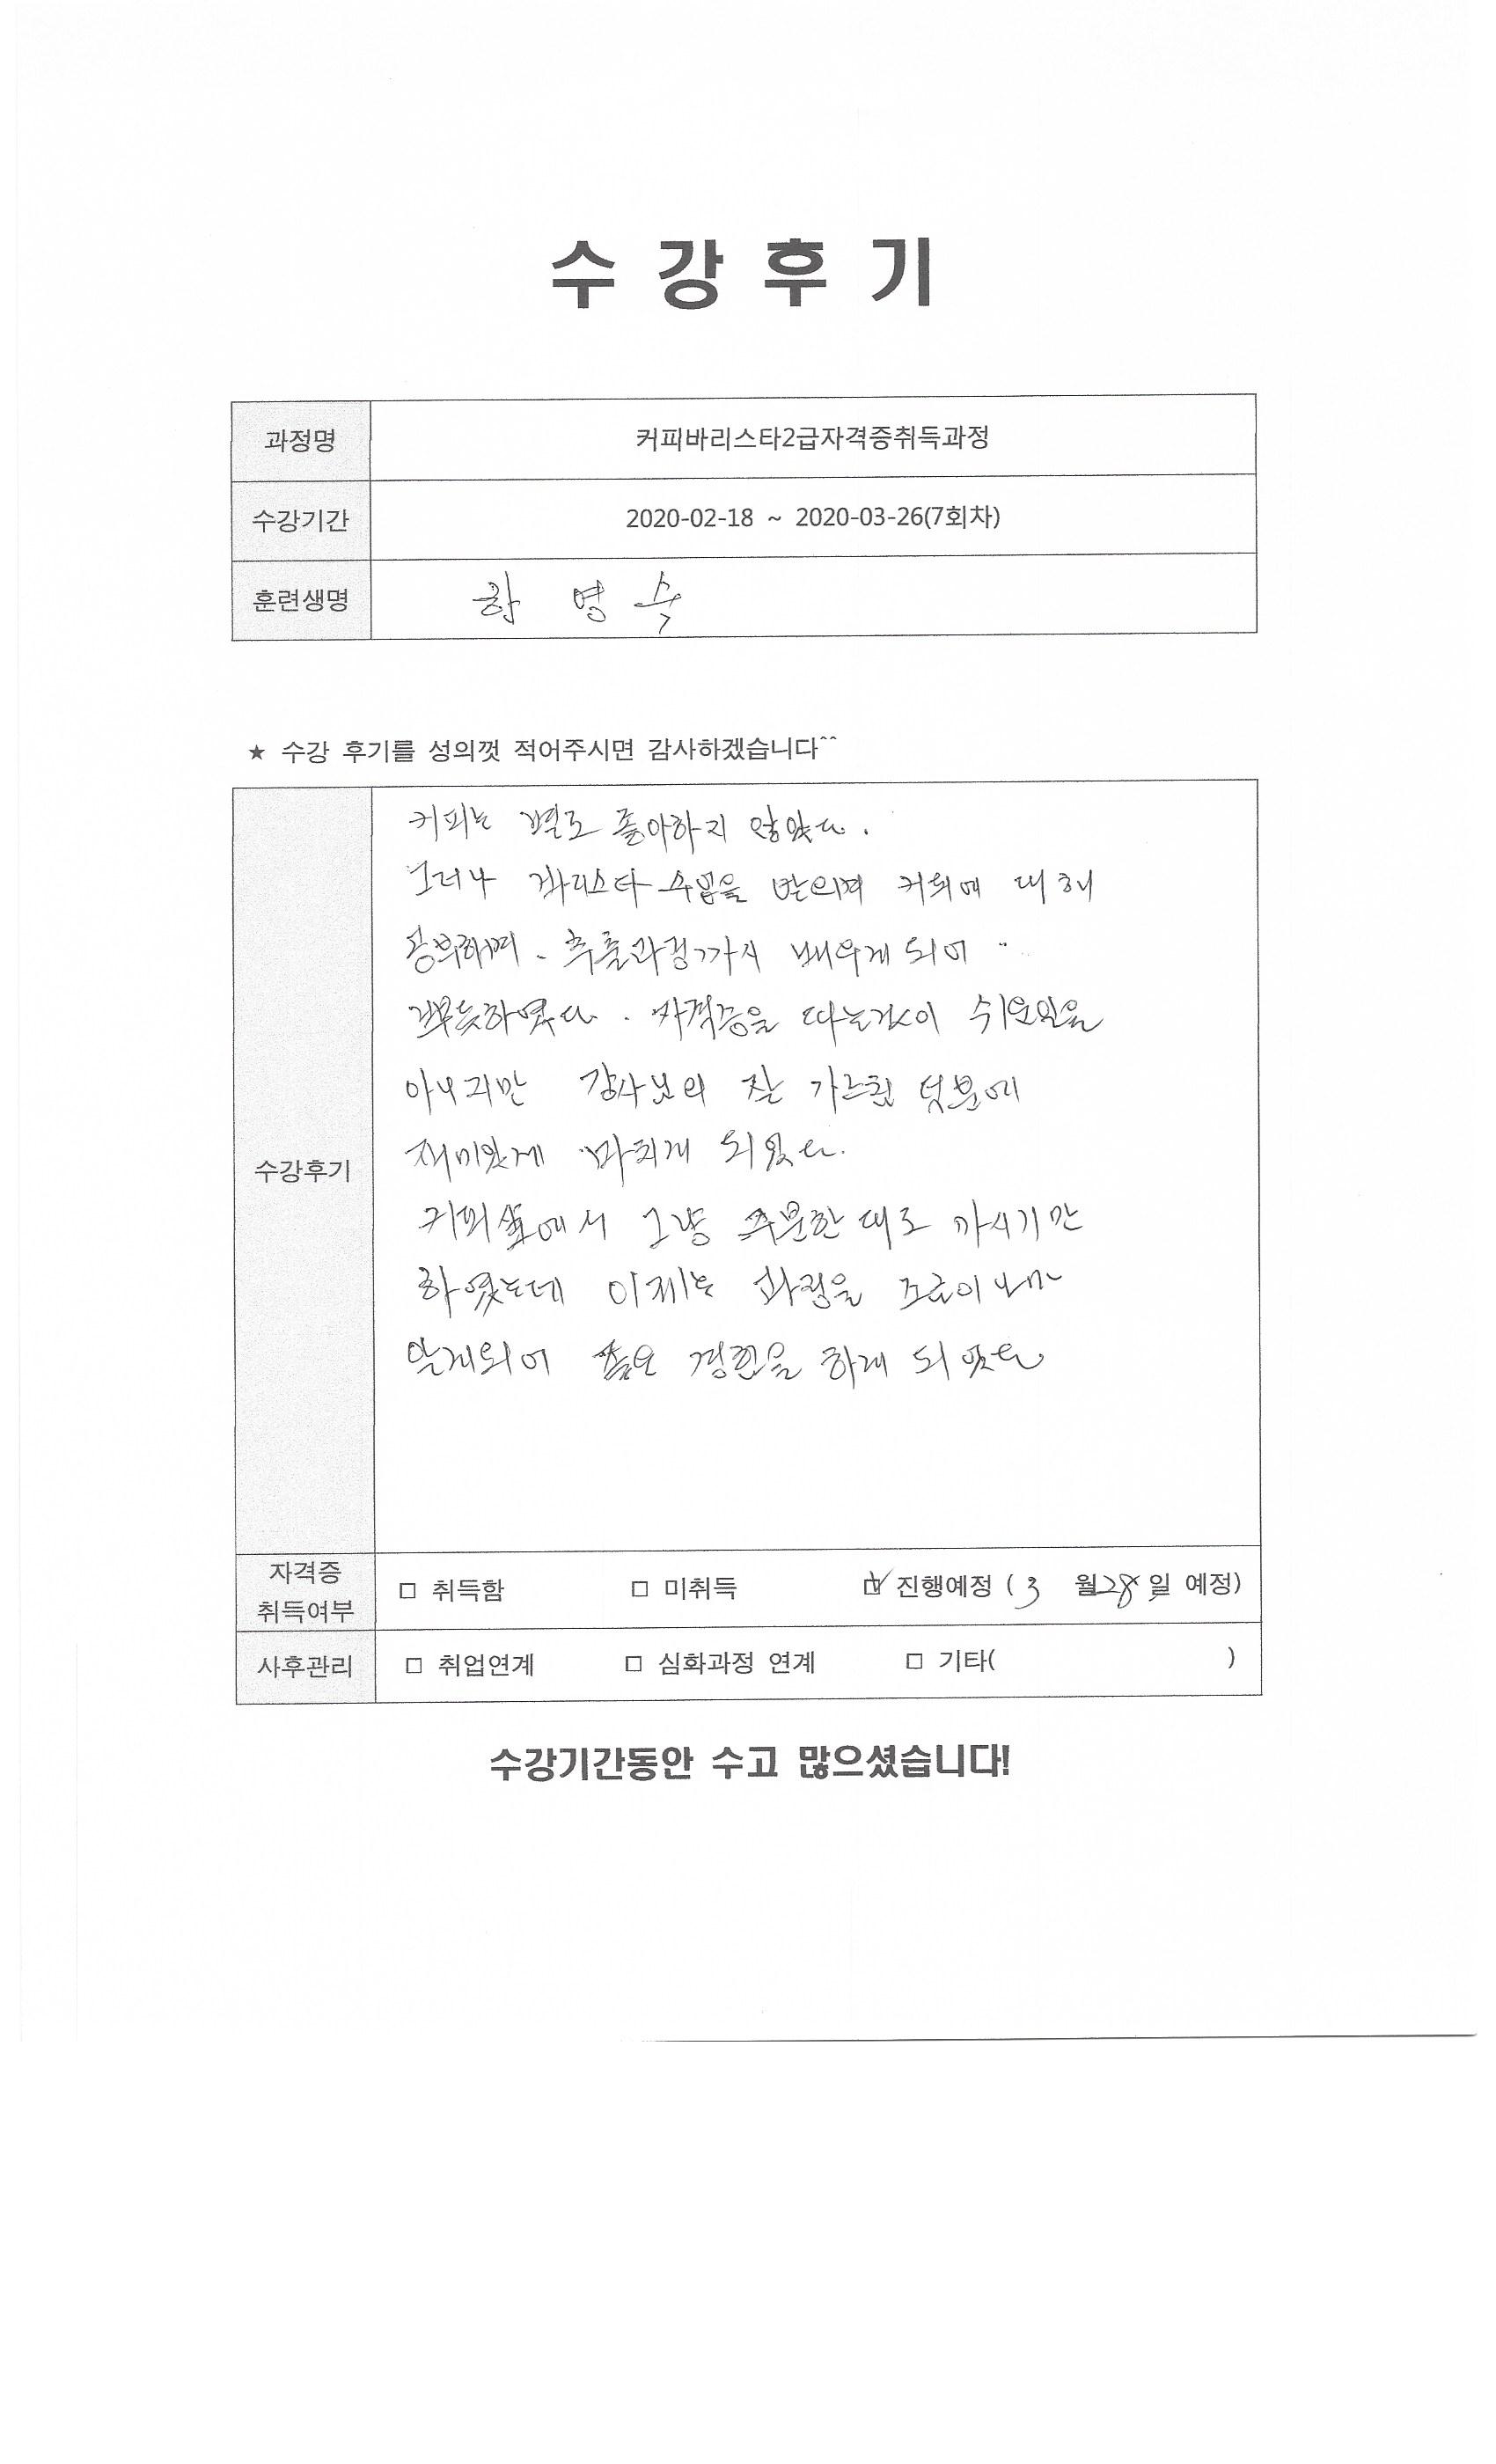 수 강 후 기
과정명 커피바리스타2급자격증취득과정
수강기간 2020-02-18 ~ 2020-03-26(7회차)
훈련생명 영 숙
★ 수강 후기를 성의껏 적어주시면 감사하겠습니다^^
수강후기
커피는 별로 좋아하지 않았다.
그러나 바리스타 수업을 받으며 커피에 대해
공부하며. 추출과정까지 배우게 되어 ..
뿌듯하였다. 자격증을 따는것이 쉬운일은
아니지만 강사님의 잘 가르친 덕분에
재미있게 마치게 되었다.
커피숍에서 그냥 주문한 대로 마시기만
하였는데 이제는 과정을 조금이나마
알게되어 좋은 경험을 하게 되었다
자격증
취득여부 □ 취득함 □ 미취득 ☑ 진행예정 ( 3 월 28 일 예정)
사후관리 □ 취업연계 □ 심화과정 연계 □ 기타( )
수강기간동안 수고 많으셨습니다!